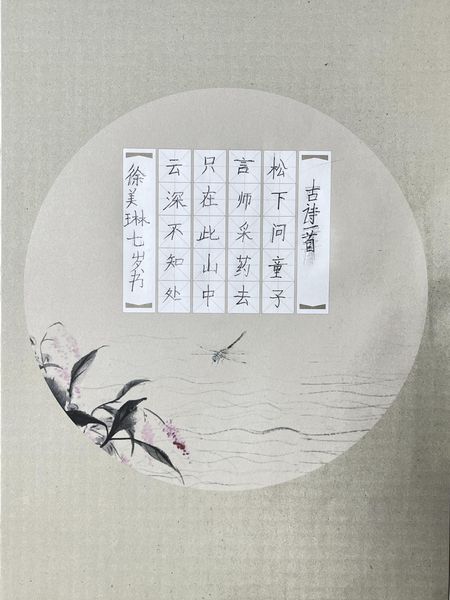 古诗一首
松下问童子
言师采药去
只在此山中
云深不知处
徐美琳七岁书